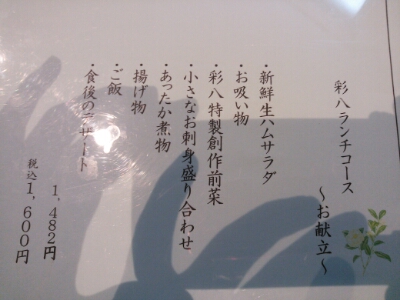 彩八ランチコース
～お献立～
・新鮮生ハムサラダ
・お吸い物
・彩八特製創作前菜
・小さなお刺身盛り合わせ
・あったか煮物
・揚げ物
・ご飯
・食後のデザート
1,482円
税込1,600円